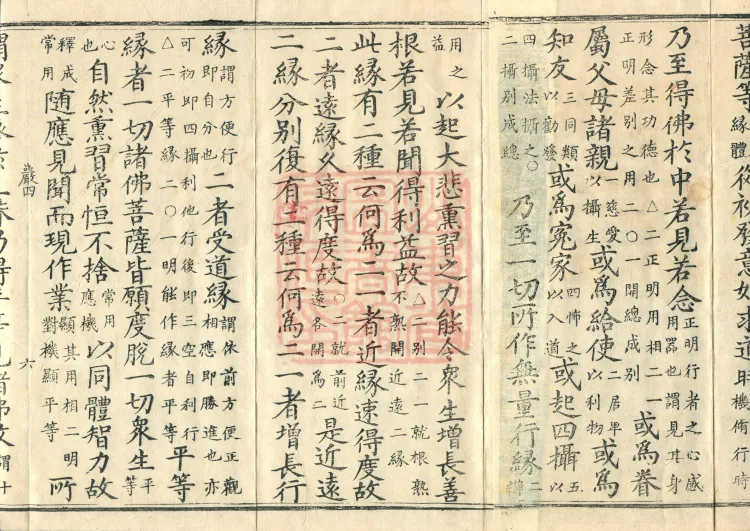 菩薩等緣體從初發意始求道時機脩行時
乃至得佛於中若見若念正明行者之心感用器也謂見其身
形念其功德也△二正明用相二一正明差別之用二〇一開總成別或爲眷
屬父母諸親一慈愛以攝生或爲給使二居卑以利物或爲
知友三同類以勸發或爲寃家四怖之以入道或起四攝五以
四攝法攝之〇二攝別成總乃至一切所作無量行緣二
用之益以起大悲熏習之力能令衆生增長善
根若見若聞得利益故△二別二一就根熟不熟開近遠二緣
此緣有二種云何爲二一者近緣速得度故
二者遠緣久遠得度故〇二就前近遠各開爲二是近遠
二緣分別復有二種云何爲二一者增長行
緣謂方便行即自分也二者受道緣謂依前方便正觀相應即勝進也亦
可初即四攝利他行後即三空自利行△二平等緣二〇一明能作緣者平等平等
緣者一切諸佛菩薩皆願度脫一切衆生平等
心也自然熏習常恒不捨常用應機以同體智力故
釋成常用隨應見聞而現作業顯其用相二明對機顯平等所
嚴四 六
謂衆生依於三昧乃得平等見諸佛故謂十